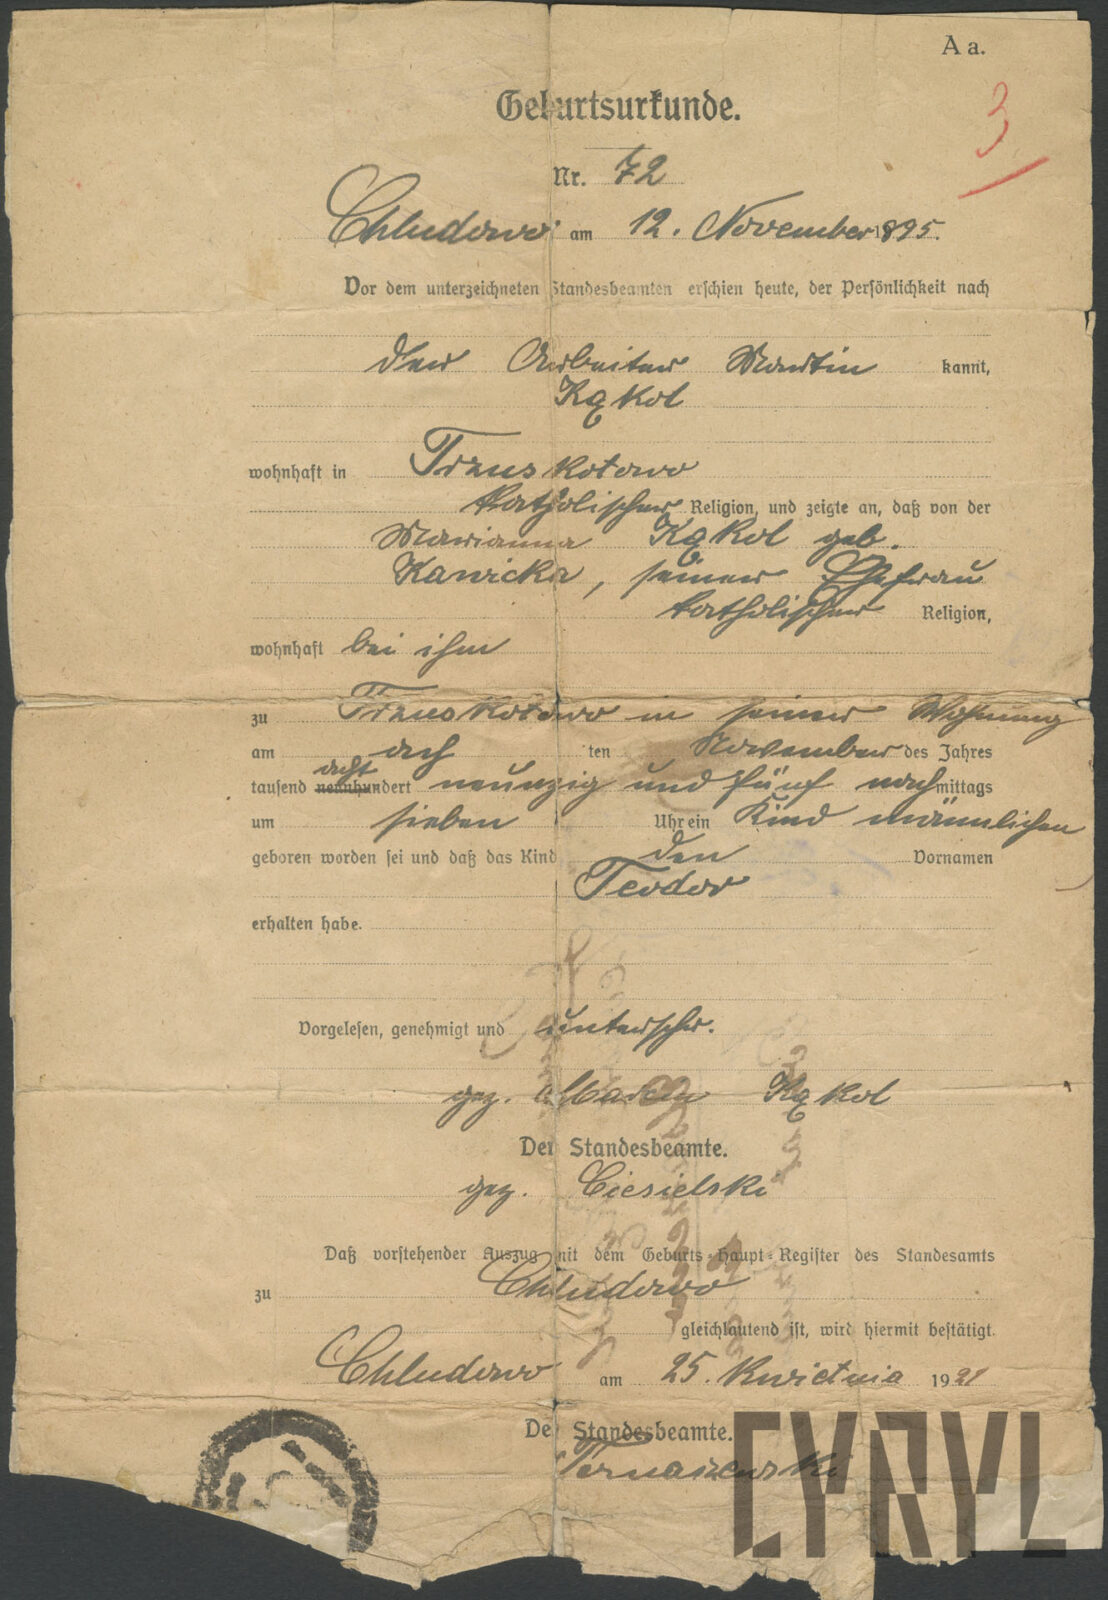 A a.
3
Geburtsurkunde.
Nr. 72
Chludowo am 12. November 1895.
Vor dem unterzeichneten Standesbeamten erschien heute, der Persönlichkeit nach
der Arbeiter Martin kannt,
Kąkol
wohnhaft in Trzuskotowo
katholischer Religion, und zeigte an, daß von der
Marianna Kąkol geb.
Kawicka, seiner Ehefrau
katholischer Religion,
wohnhaft bei ihm
zu Trzuskotowo in seiner Wohnung
am ach ten November des Jahres
acht
tausend neunhundert neunzig und fünf nachmittags
um sieben Uhr ein Kind männlichen
geboren worden sei und daß das Kind den Vornamen
Teodor
erhalten habe.
Vorgelesen, genehmigt und unterschr.
gez. Marcin Kąkol
Der Standesbeamte.
gez. Ciesielski
Daß vorstehender Auszug mit dem Geburts-Haupt-Register des Standesamts
zu Chludowo
gleichlautend ist, wird hiermit bestätigt.
Chludowo am 25. Kwietnia 1921
De Standesbeamte.
CYRYL